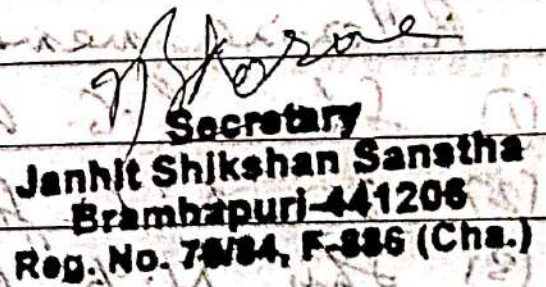 Secretary
Janhit Shikshan Sanstha
Brambapuri-441206
Reg. No. 78/84, F-886 (Cha.)